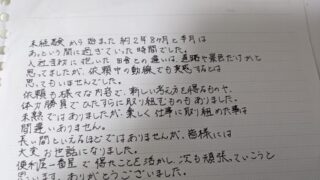 未経験から始まった約2年8ヶ月と半月は
あっという間に過ぎていった時間でした。
入社当初に想った田舎との違いは、道路や景色だけかと
思ってましたが、依頼中の動機でも実感するとは
思ってもいませんでした。
依頼も様々な内容で、新しい考え方を得るものや、
体力勝負でひたすらに取り組むものもありました。
未熟ではありましたが、楽しく仕事に取り組めた事は
間違いありません。
長い間といえるほどではありませんが、皆様には
大変お世話になりました。
便利屋一番星で得たことを活かし、次も頑張っていこうと
思います。ありがとうございました。